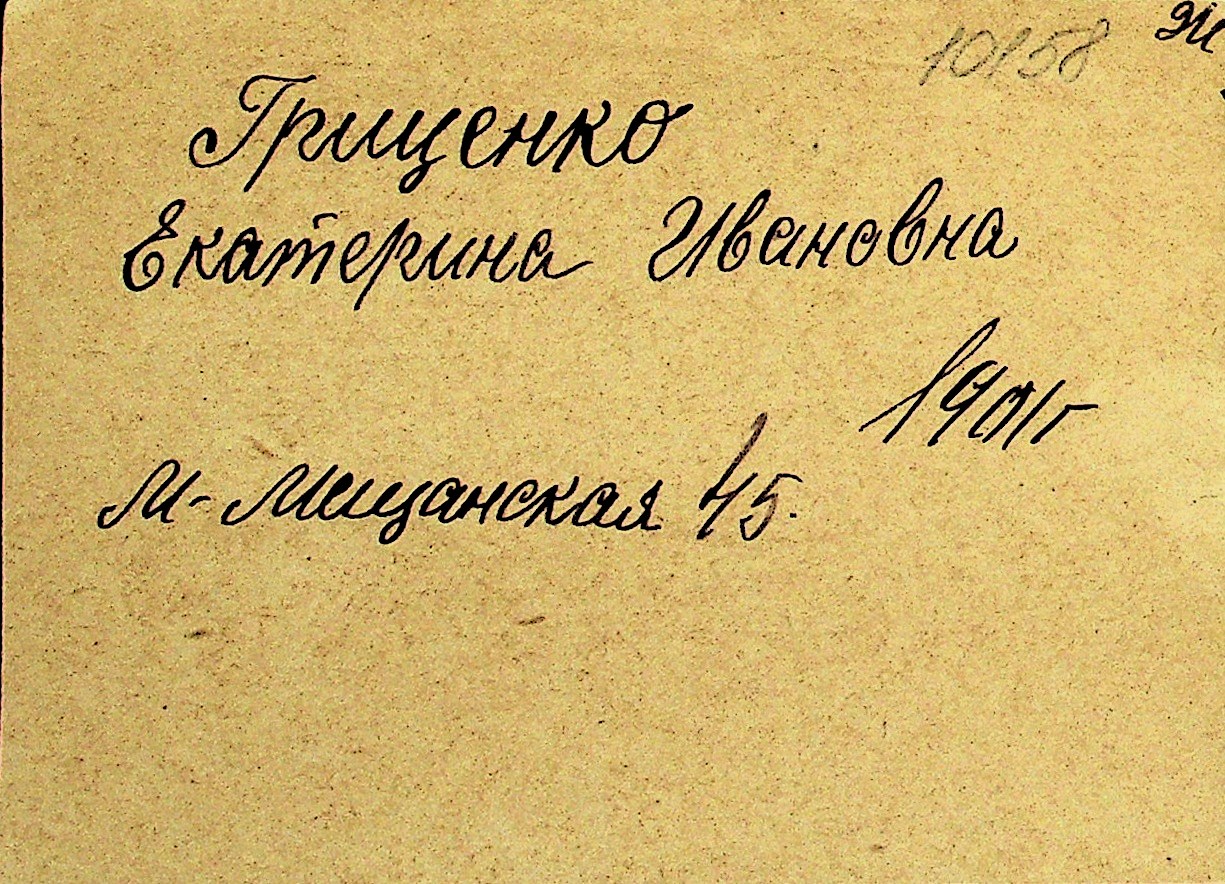 10158
Гриценко
Екатерина Ивановна
1901г
М-Мещанская 45.